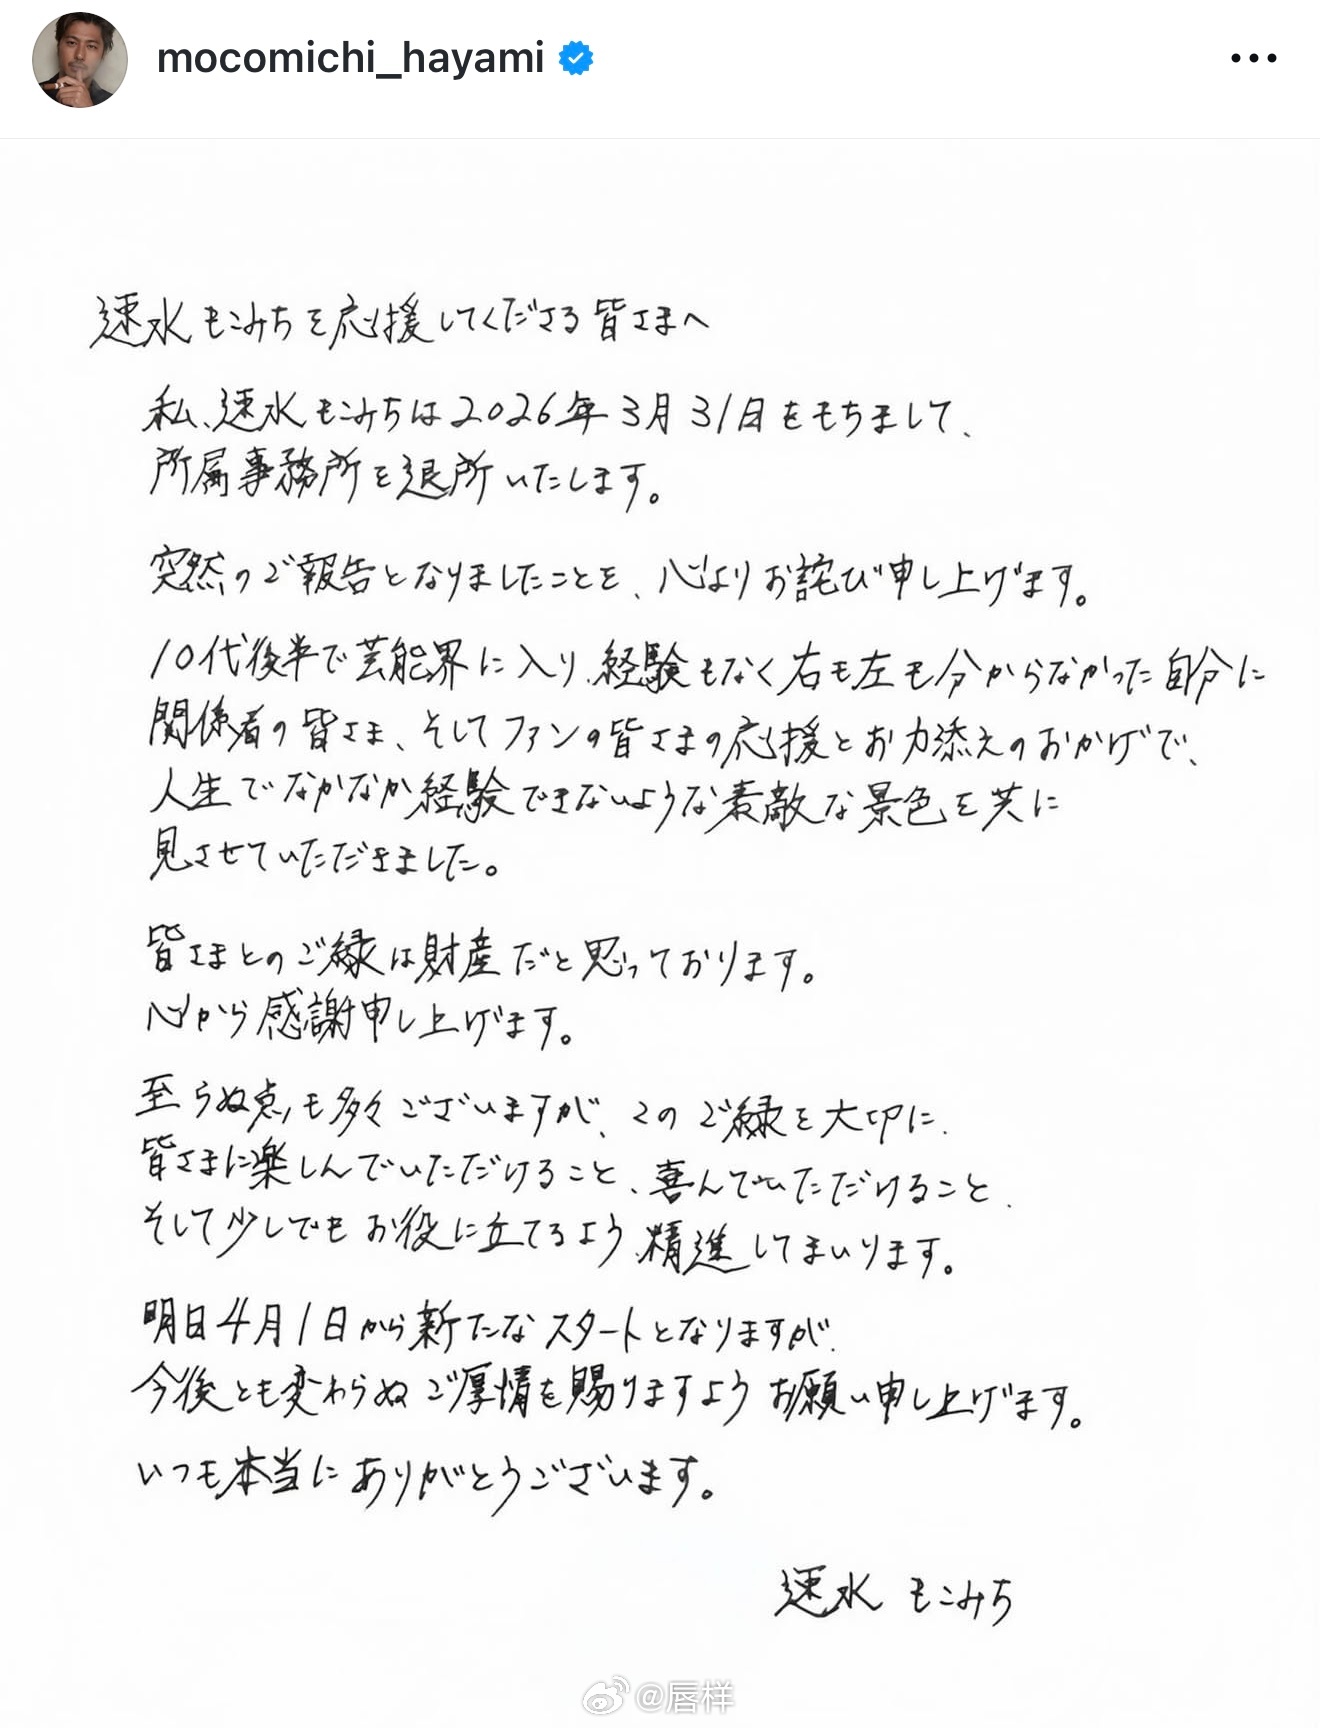 mocomichi_hayami
速水もこみちを応援してくださる皆さまへ
私、速水もこみちは2026年3月31日をもちまして、
所属事務所を退所いたします。
突然のご報告となりましたことを、心よりお詫び申し上げます。
10代後半で芸能界に入り、経験もなく右も左も分からなかった自分に
関係者の皆さま、そしてファンの皆さまの応援とお力添えのおかげで、
人生でなかなか経験できないような素敵な景色を共に
見させていただきました。
皆さまとのご縁は財産だと思っております。
心から感謝申し上げます。
至らぬ点も多々ございますが、このご縁を大切に、
皆さまに楽しんでいただけること、喜んでいただけること、
そして少しでもお役に立てるよう、精進してまいります。
明日4月1日から新たなスタートとなりますが、
今後とも変わらぬご厚情を賜りますようお願い申し上げます。
いつも本当にありがとうございます。
速水 もこみち
@唇样